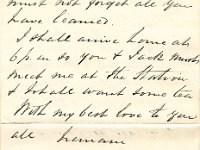 must not forget all you
have learned.
I shall arrive home at
6 p.m so you & Jack must
meet me at the Station
& I shall want some tea
With my best love to you
all I remain